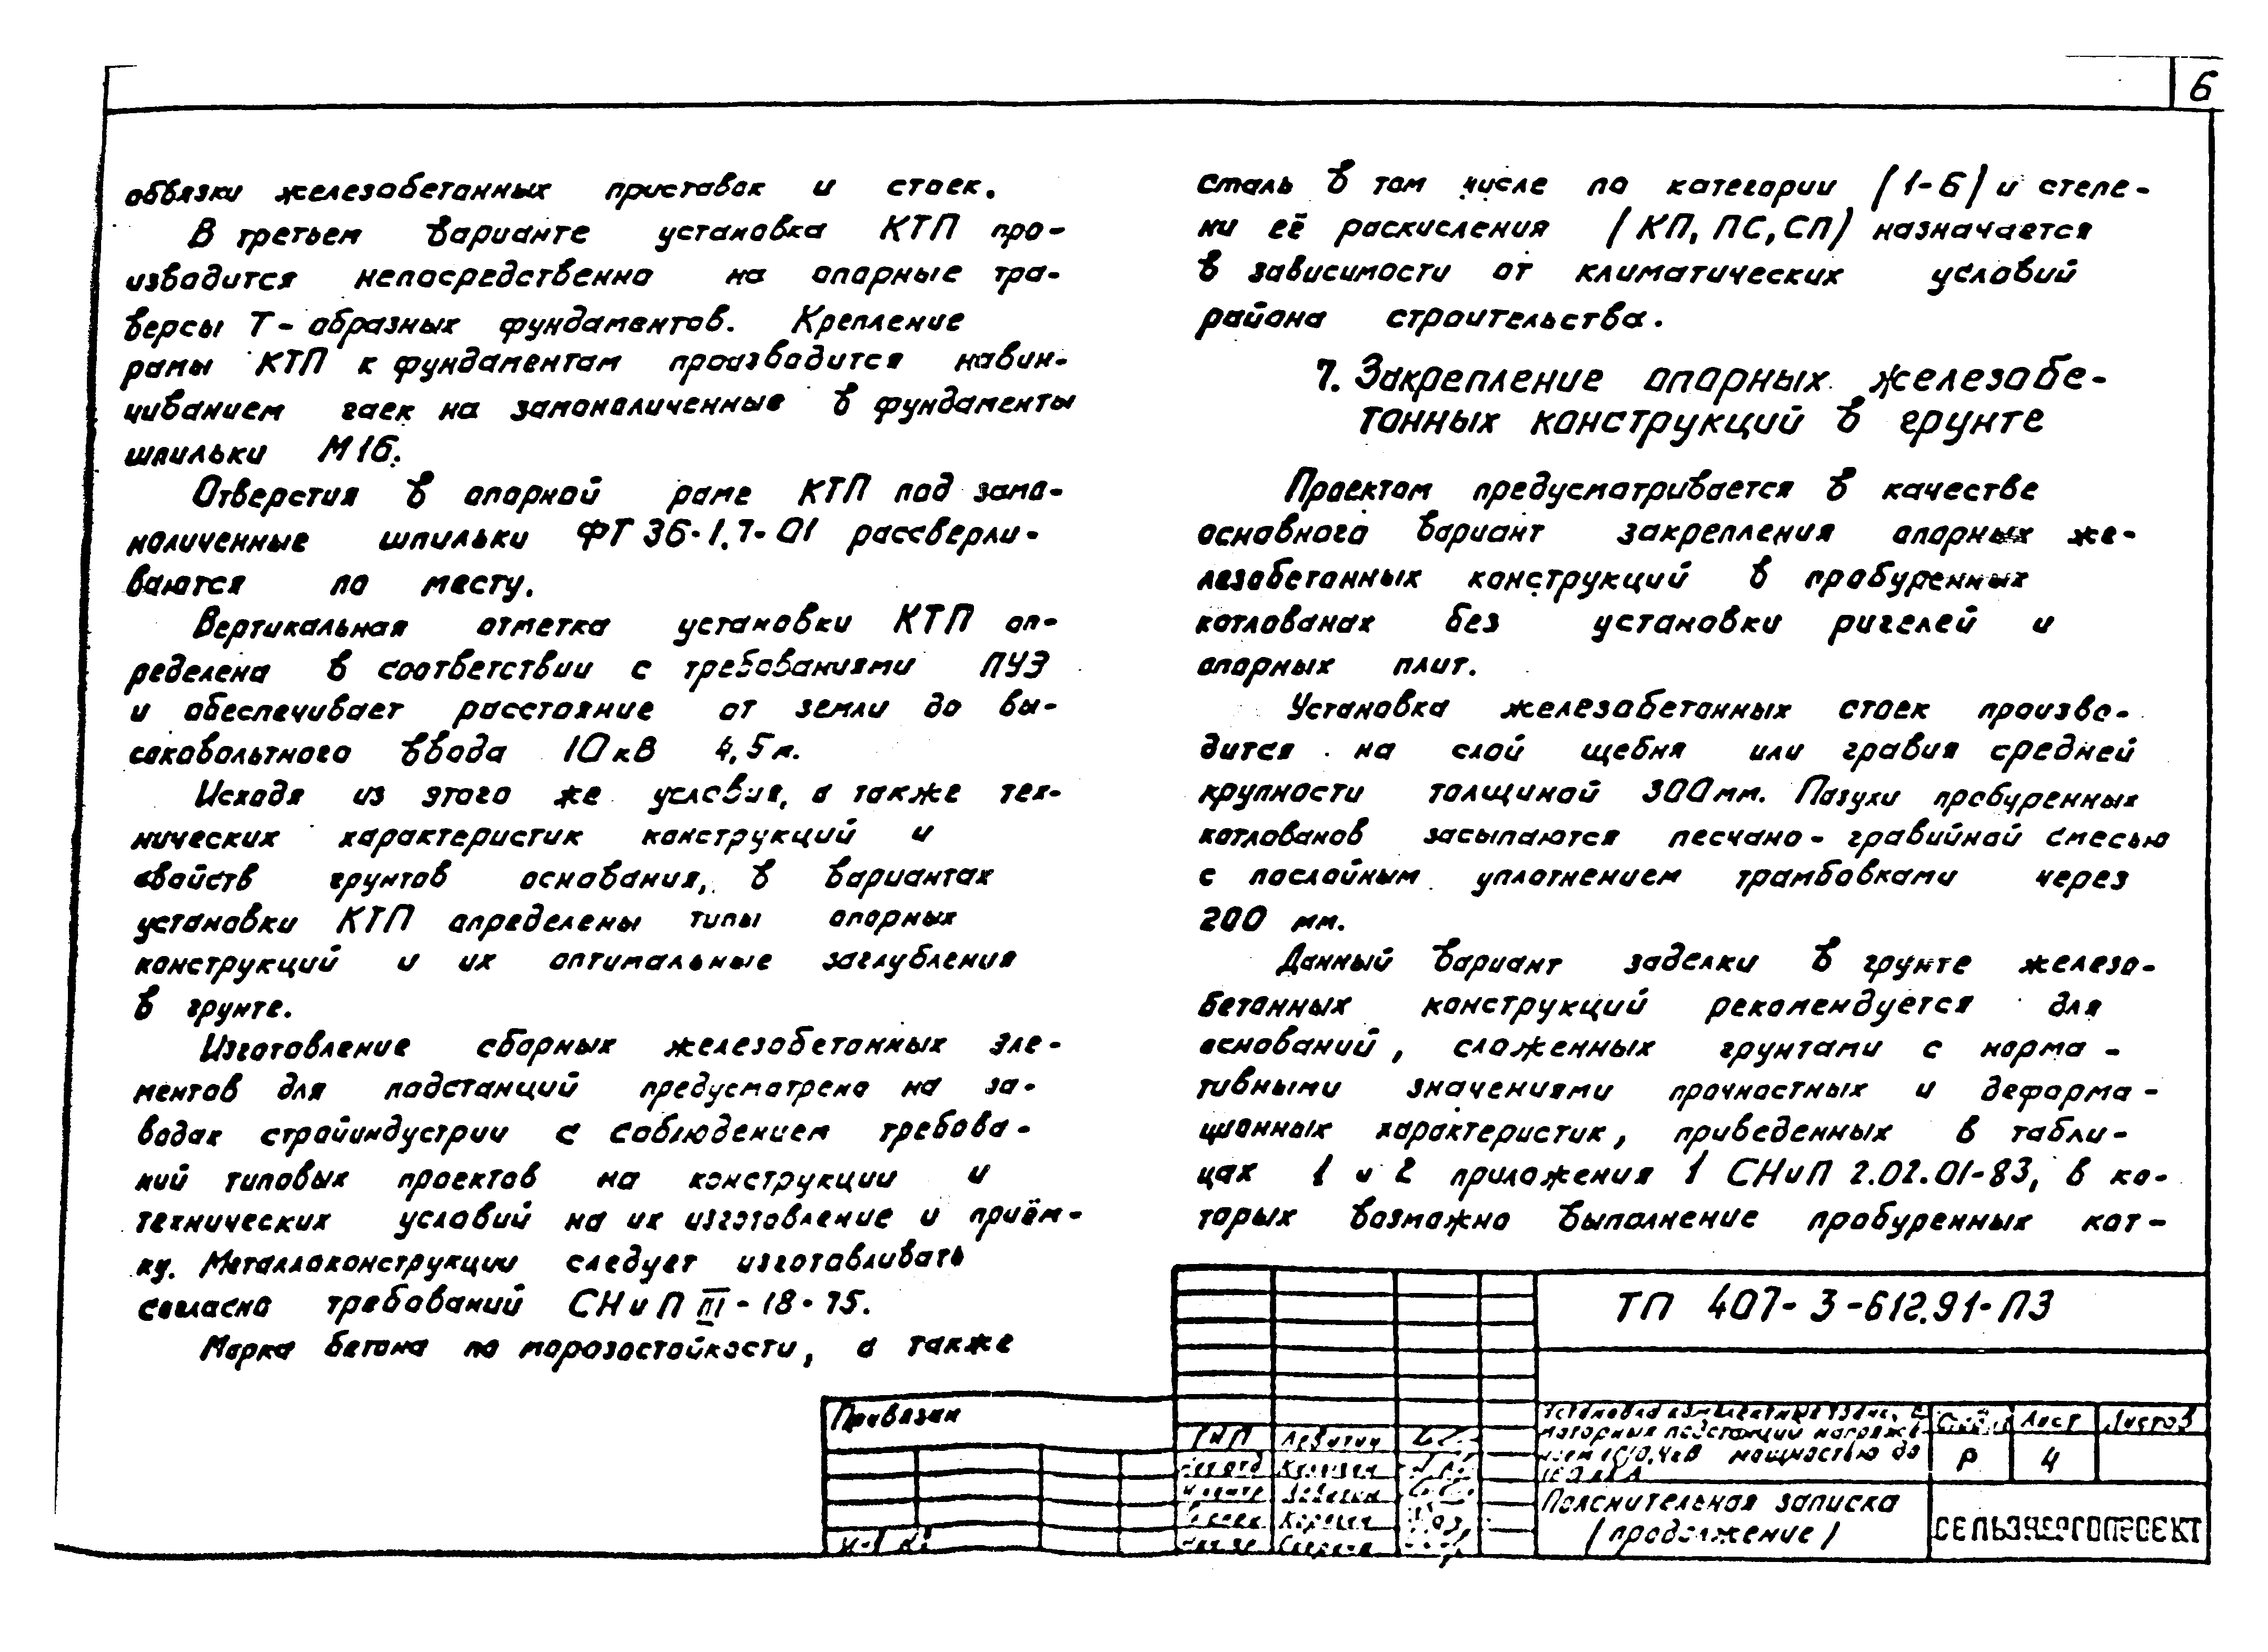 6
обвязки железобетонных приставок и стоек.
В третьем варианте установка КТП про-
изводится непосредственно на опорные тра-
версы Т-образных фундаментов. Крепление
рамы КТП к фундаментам производится навин-
чиванием гаек на замоноличенные в фундаменты
шпильки М16.
Отверстия в опорной раме КТП под замо-
ноличенные шпильки ФТ 36-1.7-01 рассверли-
ваются по месту.
Вертикальная отметка установки КТП оп-
ределена в соответствии с требованиями ПУЭ
и обеспечивает расстояние от земли до вы-
соковольтного ввода 10кВ 4,5м.
Исходя из этого же условия, а также тех-
нических характеристик конструкций и
свойств грунтов основания, в вариантах
установки КТП определены типы опорных
конструкций и их оптимальные заглубления
в грунте.
Изготовление сборных железобетонных эле-
ментов для подстанций предусмотрено на за-
водах стройиндустрии с соблюдением требова-
ний типовых проектов на конструкции и
технических условий на их изготовление и приём-
ку. Металлоконструкции следует изготавливать
согласно требований СНиП III-18-75.
Марка бетона по морозостойкости, а также
сталь в том числе по категории (1-6) и степе-
ни её раскисления (КП, ПС, СП) назначается
в зависимости от климатических условий
района строительства.
7. Закрепление опорных железобе-
тонных конструкций в грунте
Проектом предусматривается в качестве
основного вариант закрепления опорных же-
лезобетонных конструкций в пробуренных
котлованах без установки ригелей и
опорных плит.
Установка железобетонных стоек произво-
дится на слой щебня или гравия средней
крупности толщиной 300мм. Пазухи пробуренных
котлованов засыпаются песчано-гравийной смесью
с послойным уплотнением трамбовками через
200 мм.
Данный вариант заделки в грунте железо-
бетонных конструкций рекомендуется для
оснований, сложенных грунтами с норма-
тивными значениями прочностных и деформа-
ционных характеристик, приведенных в табли-
цах 1 и 2 приложения 1 СНиП 2.02.01-83, в ко-
торых возможно выполнение пробуренных кот-
ТП 407-3-612.91-ПЗ
Привязан
ГИП
подстанций
мощностью до
Лист Листов
Р 4
Пояснительная записка
(продолжение)
СЕЛЬЭНЕРГОПРОЕКТ